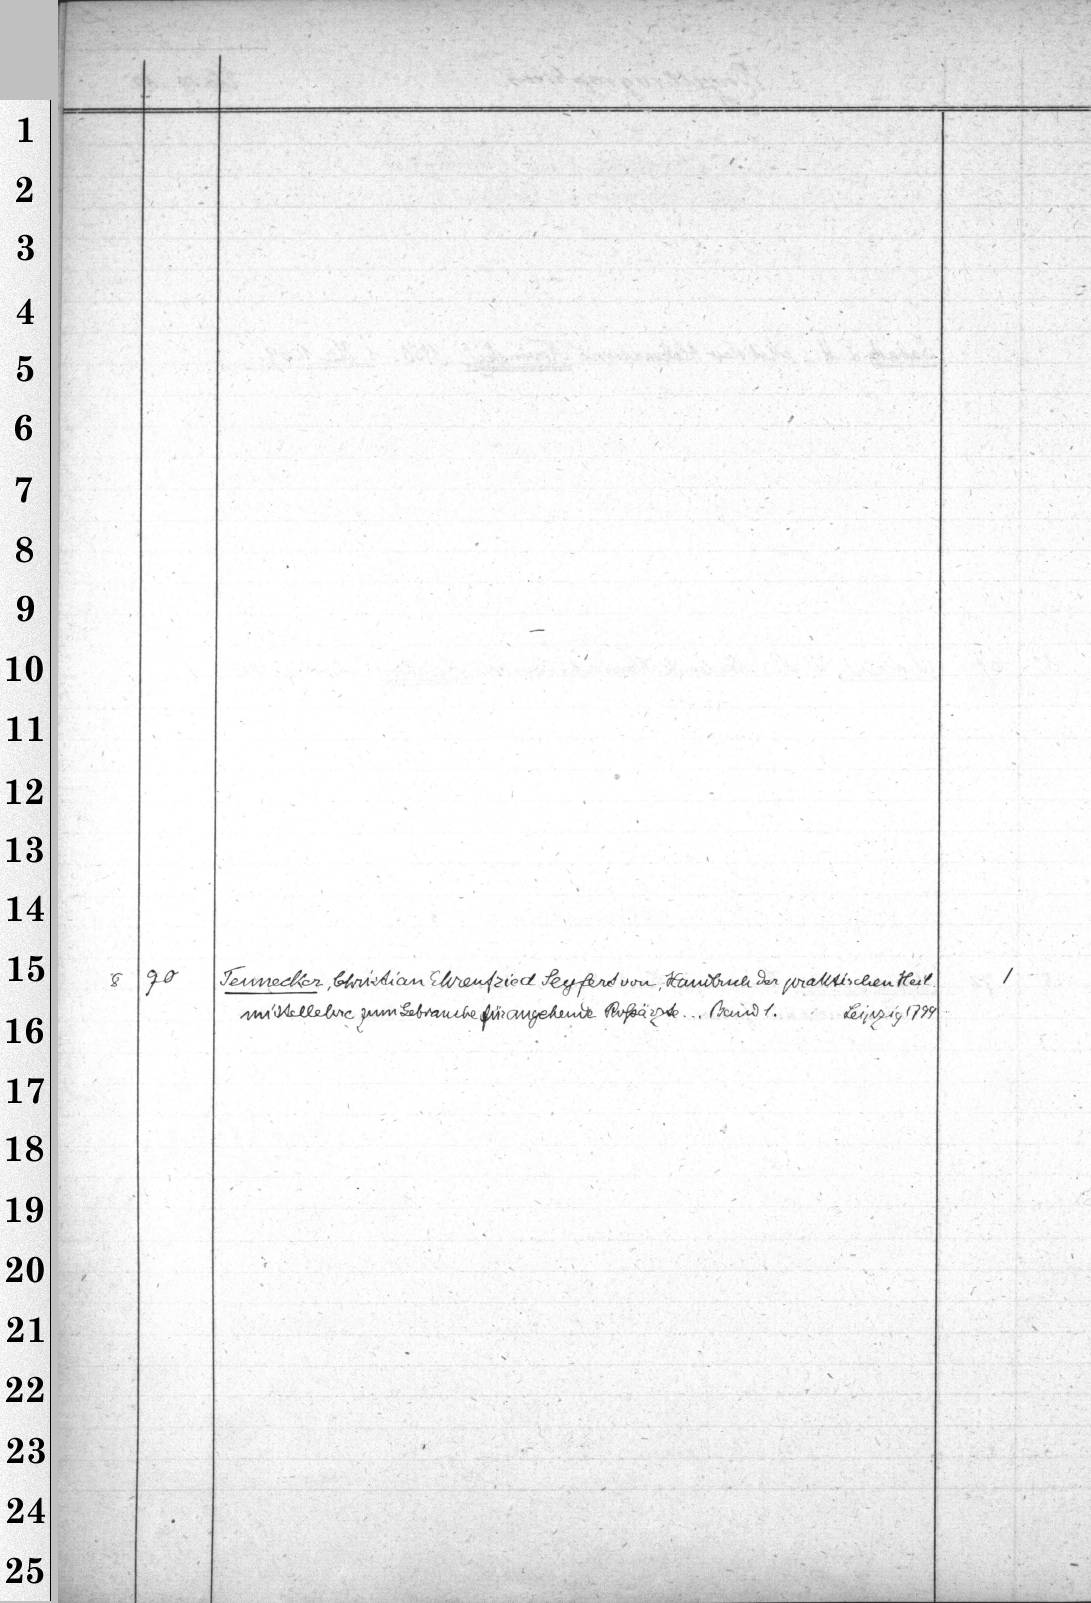 1
2
3
4
5
6
7
8
9
10
11
12
13
14
15 8 90 Tennecker, Christian Ehrenfried Seyfert von, Handbuch der praktischen Heil- 1
16 mittellehre zum Gebrauche für angehende Roßärzte... Band 1. Leipzig 1799
17
18
19
20
21
22
23
24
25